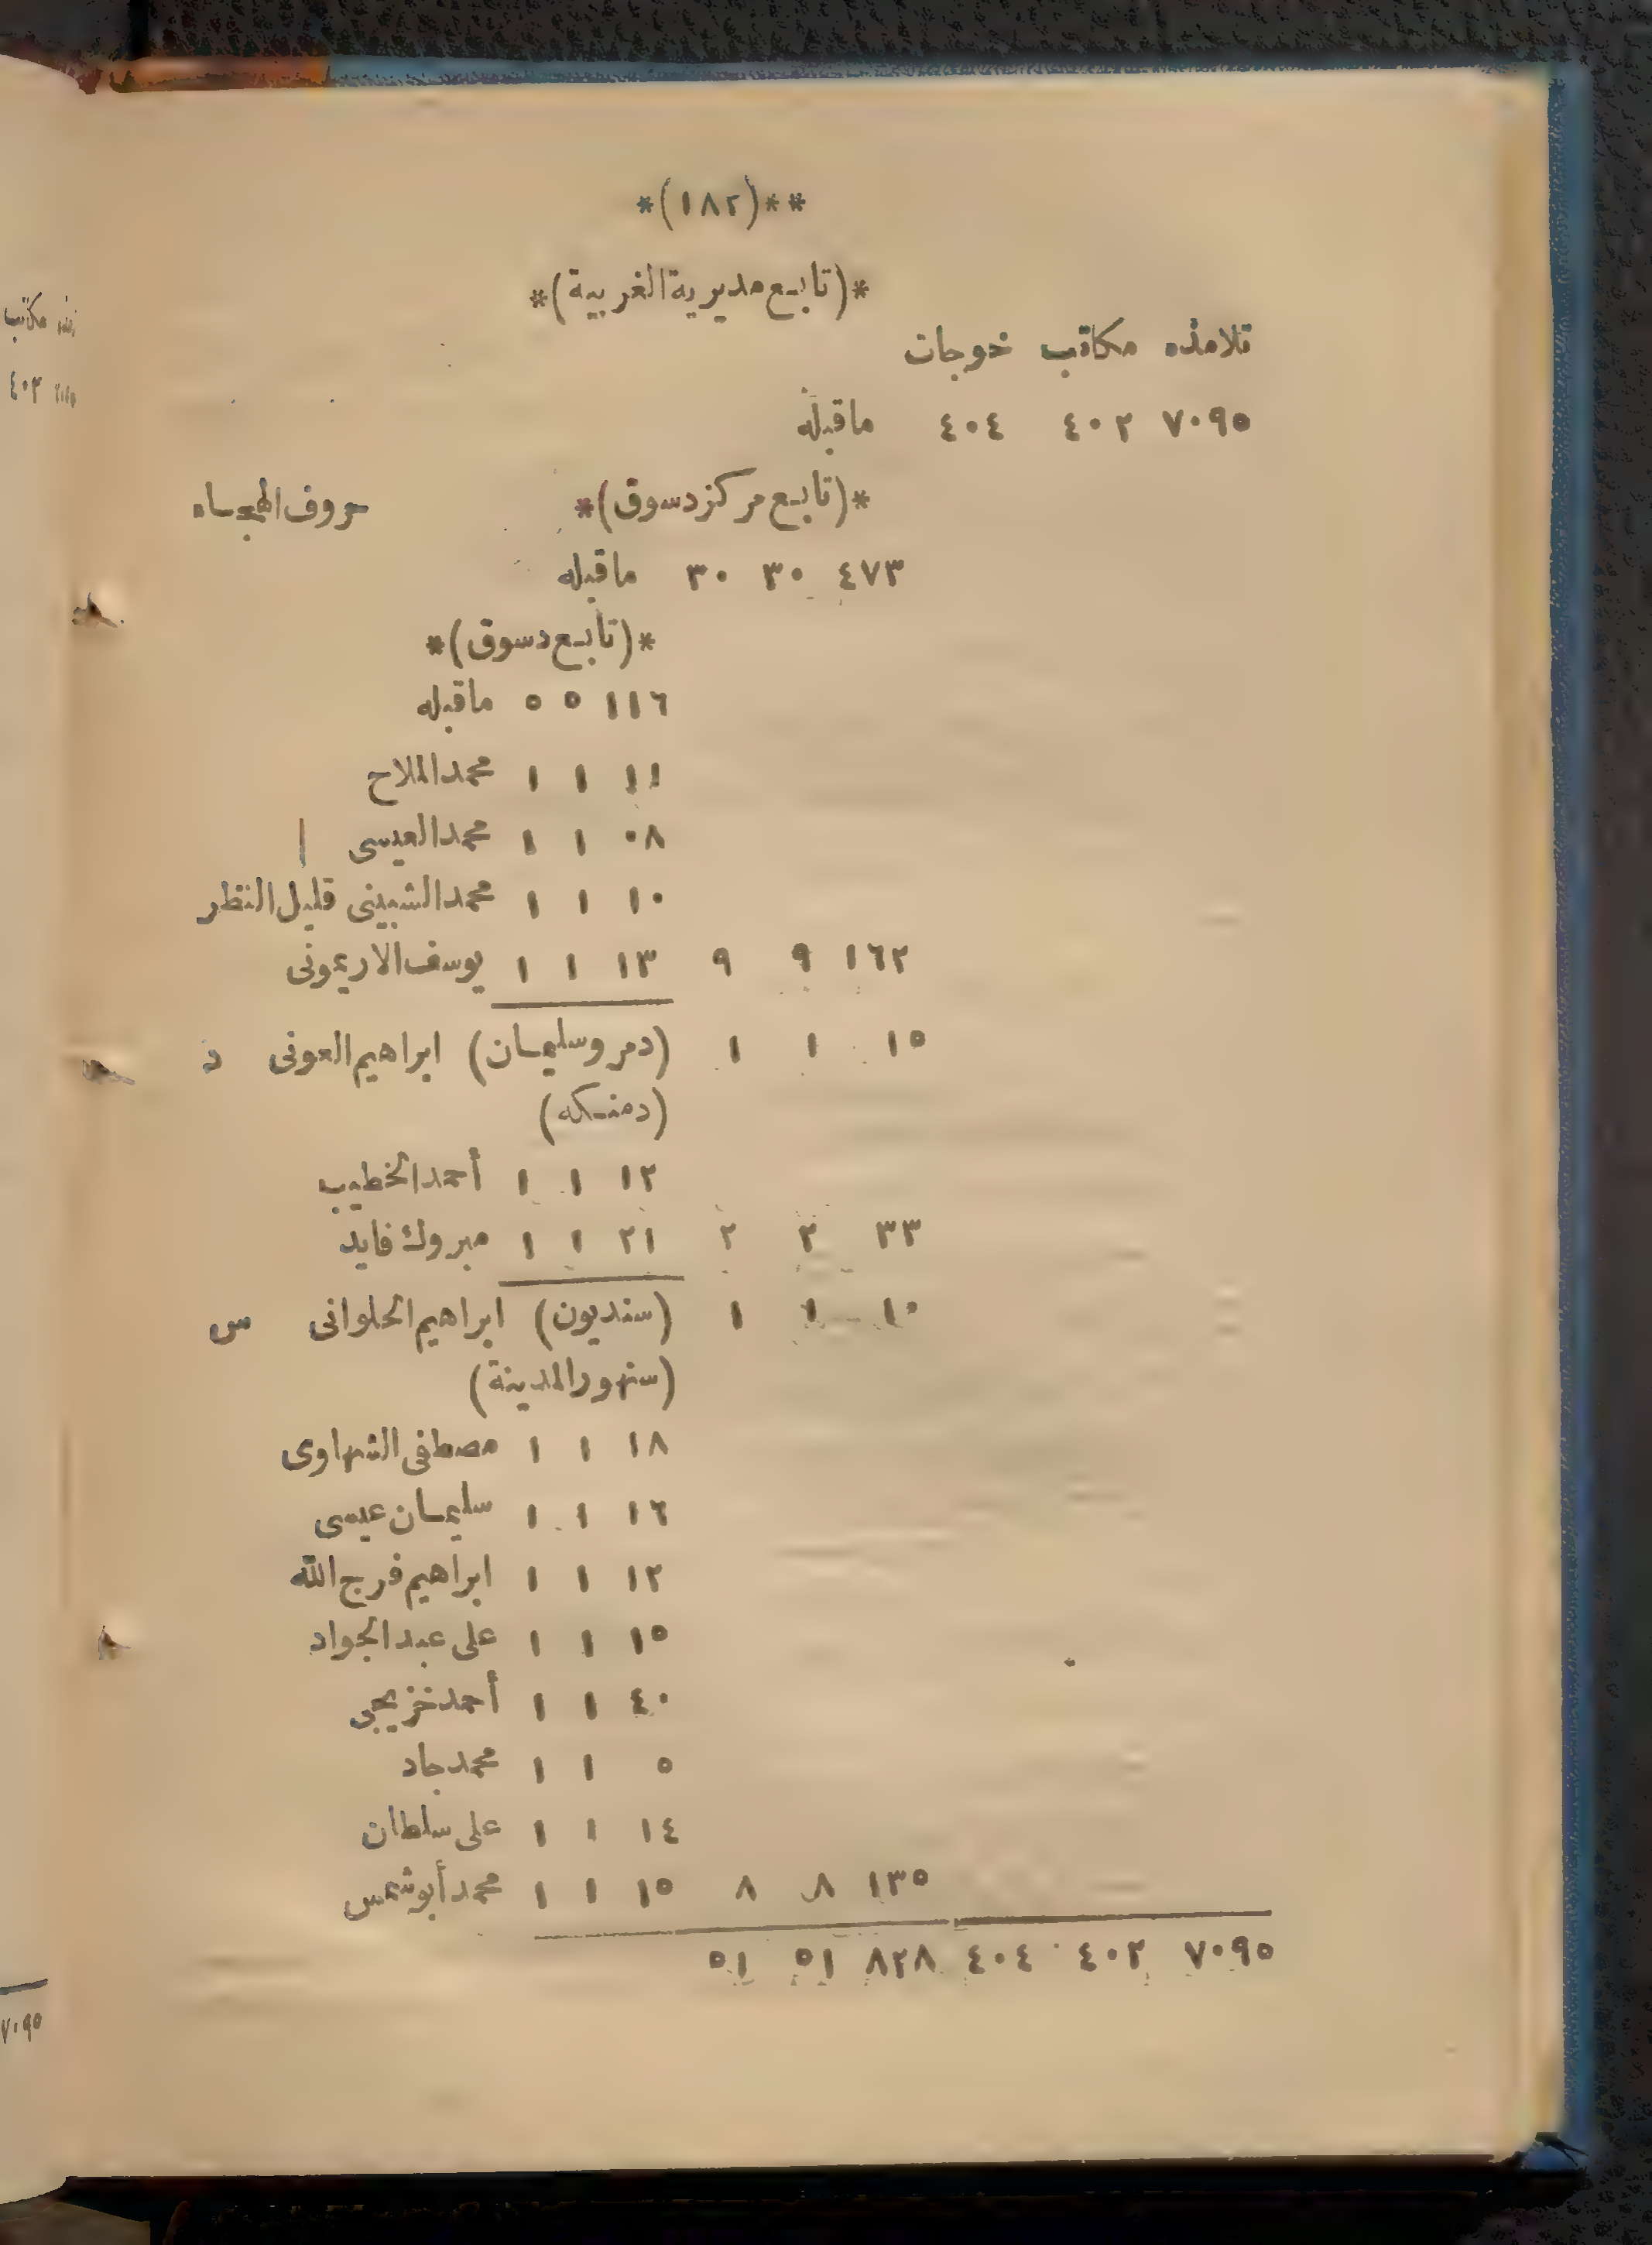 **(١٨٢)*
*(تابع مديرية الغربية)*
تلامذه مكاتب خوجات
٧٠٩٥ ٤٠٢ ٤٠٤ ماقبله
*(تابع مركز دسوق)* حروف الهجاء
٤٧٣ ٣٠ ٣٠ ماقبله
*(تابع دسوق)*
١١٦ ٥ ٥ ماقبله
١١ ١ ١ محمد الملاح
٠٨ ١ ١ محمد العيسى
١٠ ١ ١ محمد الشبينى قليل النظر
١٦٢ ٩ ٩ ١٣ ١ ١ يوسف الاريمونى
١٥ ١ ١ (دمر وسليمان) ابراهيم العونى د
(دمنكه)
١٢ ١ ١ أحمد الخطيب
٣٣ ٢ ٢ ٢١ ١ ١ مبروك فايد
١٠ ١ ١ (سنديون) ابراهيم الحلوانى س
(سنهور المدينة)
١٨ ١ ١ مصطفى الشهاوى
١٦ ١ ١ سليمان عيسى
١٢ ١ ١ ابراهيم فرج الله
١٥ ١ ١ على عبد الجواد
٤٠ ١ ١ أحمد
٥ ١ ١ محمد جاد
١٤ ١ ١ على سلطان
١٣٥ ٨ ٨ ١٥ ١ ١ محمد أبو شمس
٧٠٩٥ ٤٠٢ ٤٠٤ ٨٢٨ ٥١ ٥١
مكاتب
٤٠٢
٧٠٩٥